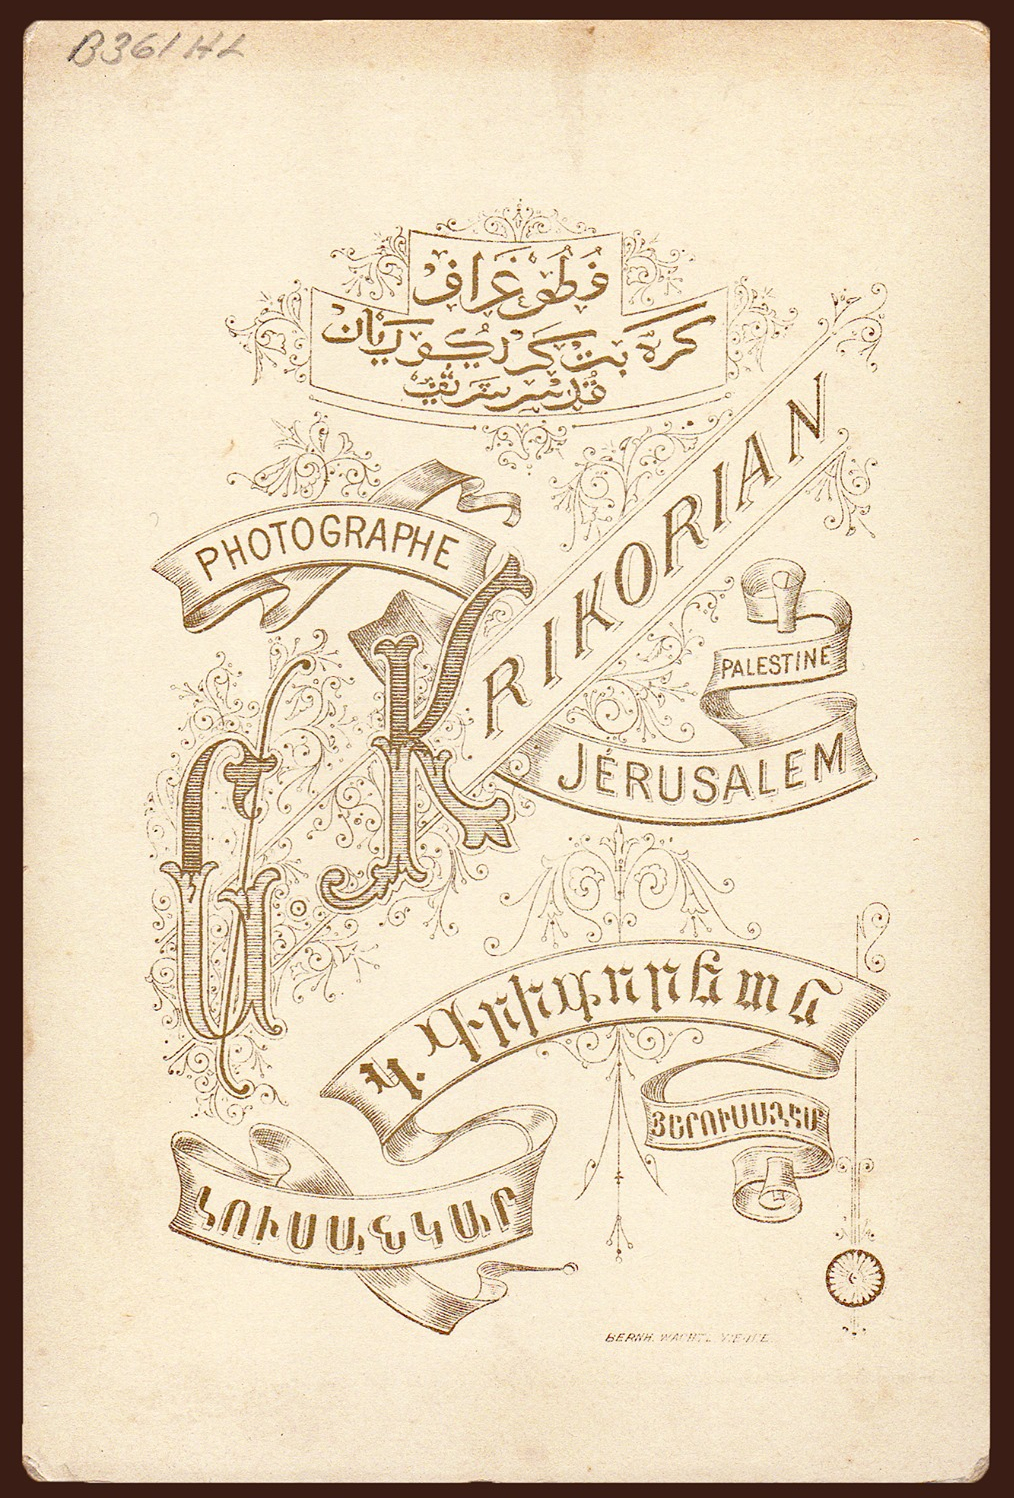 B361HL
فُطُوغراف
كره بت كريكوريان
قدس شريف
PHOTOGRAPHE
G KRIKORIAN
PALESTINE
JÉRUSALEM
Կ. Գրիգորեան
ՅԵՐՈՒՍԱՂԷՄ
ԼՈՒՍԱՆԿԱՐ
BERNH. WACHTL VIENNE